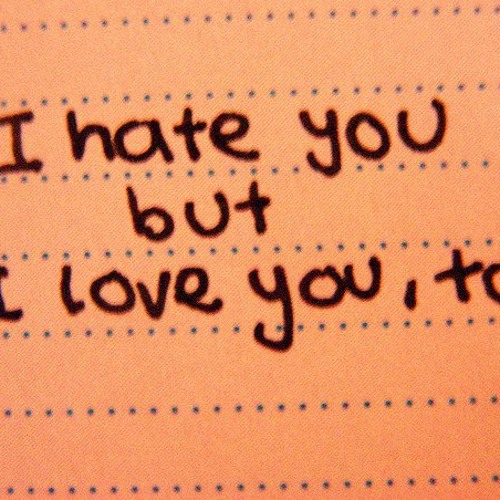 I hate you
but
I love you, to